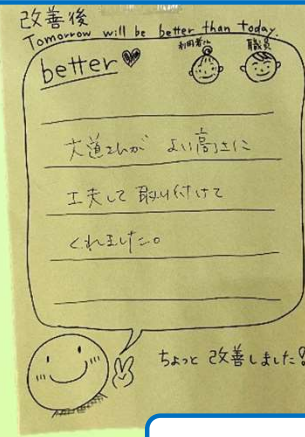 改善後
Tomorrow will be better than today.
利用者さん 職員
better
大道さんが よい高さに
工夫して取り付けて
くれました。
ちょっと改善しました!